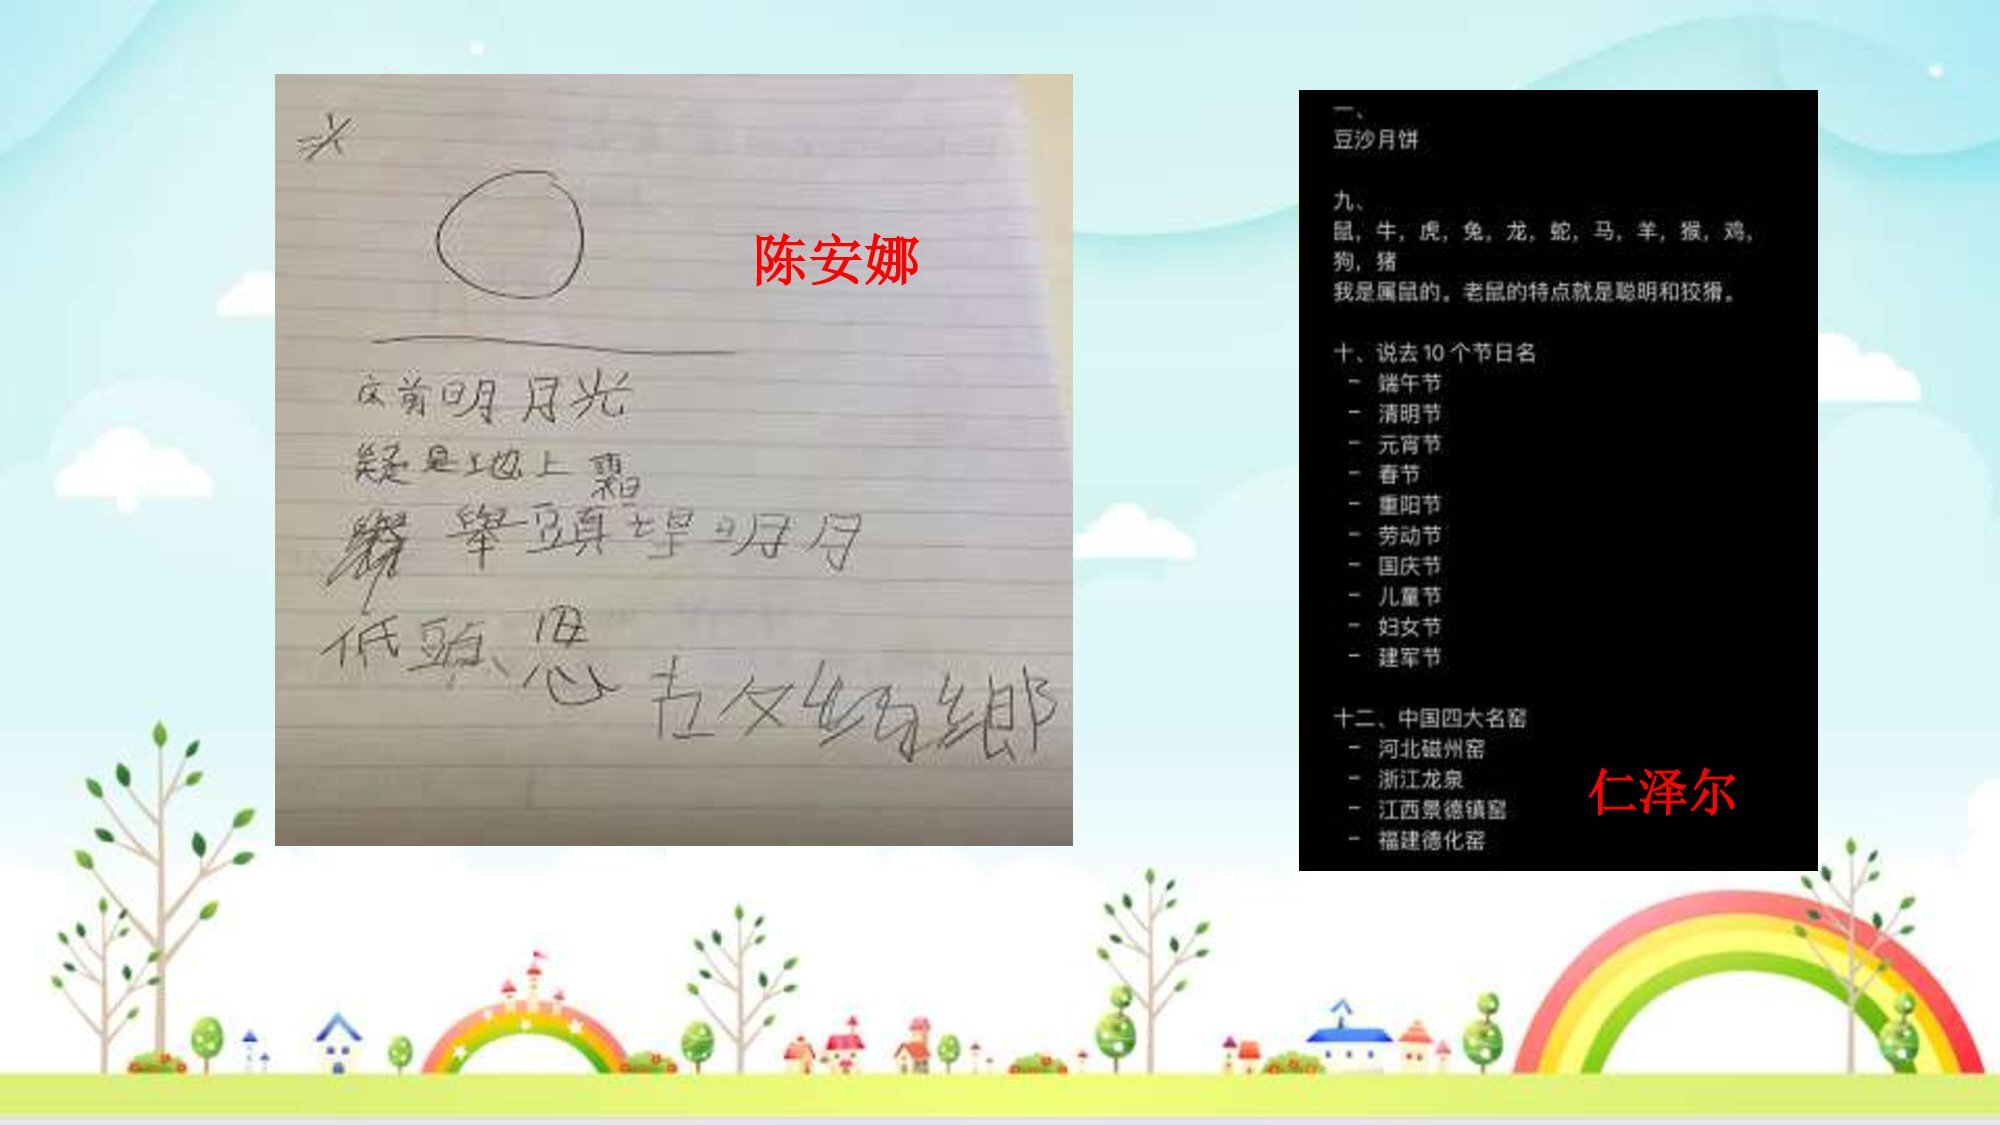 陈安娜
床前明月光
疑是地上霜
舉頭望明月
低頭思
故
鄉
一、
豆沙月饼
九、
鼠，牛，虎，兔，龙，蛇，马，羊，猴，鸡，
狗，猪
我是属鼠的。老鼠的特点就是聪明和狡猾。
十、说去 10 个节日名
- 端午节
- 清明节
- 元宵节
- 春节
- 重阳节
- 劳动节
- 国庆节
- 儿童节
- 妇女节
- 建军节
十二、中国四大名窑
- 河北磁州窑
- 浙江龙泉
- 江西景德镇窑
- 福建德化窑
仁泽尔